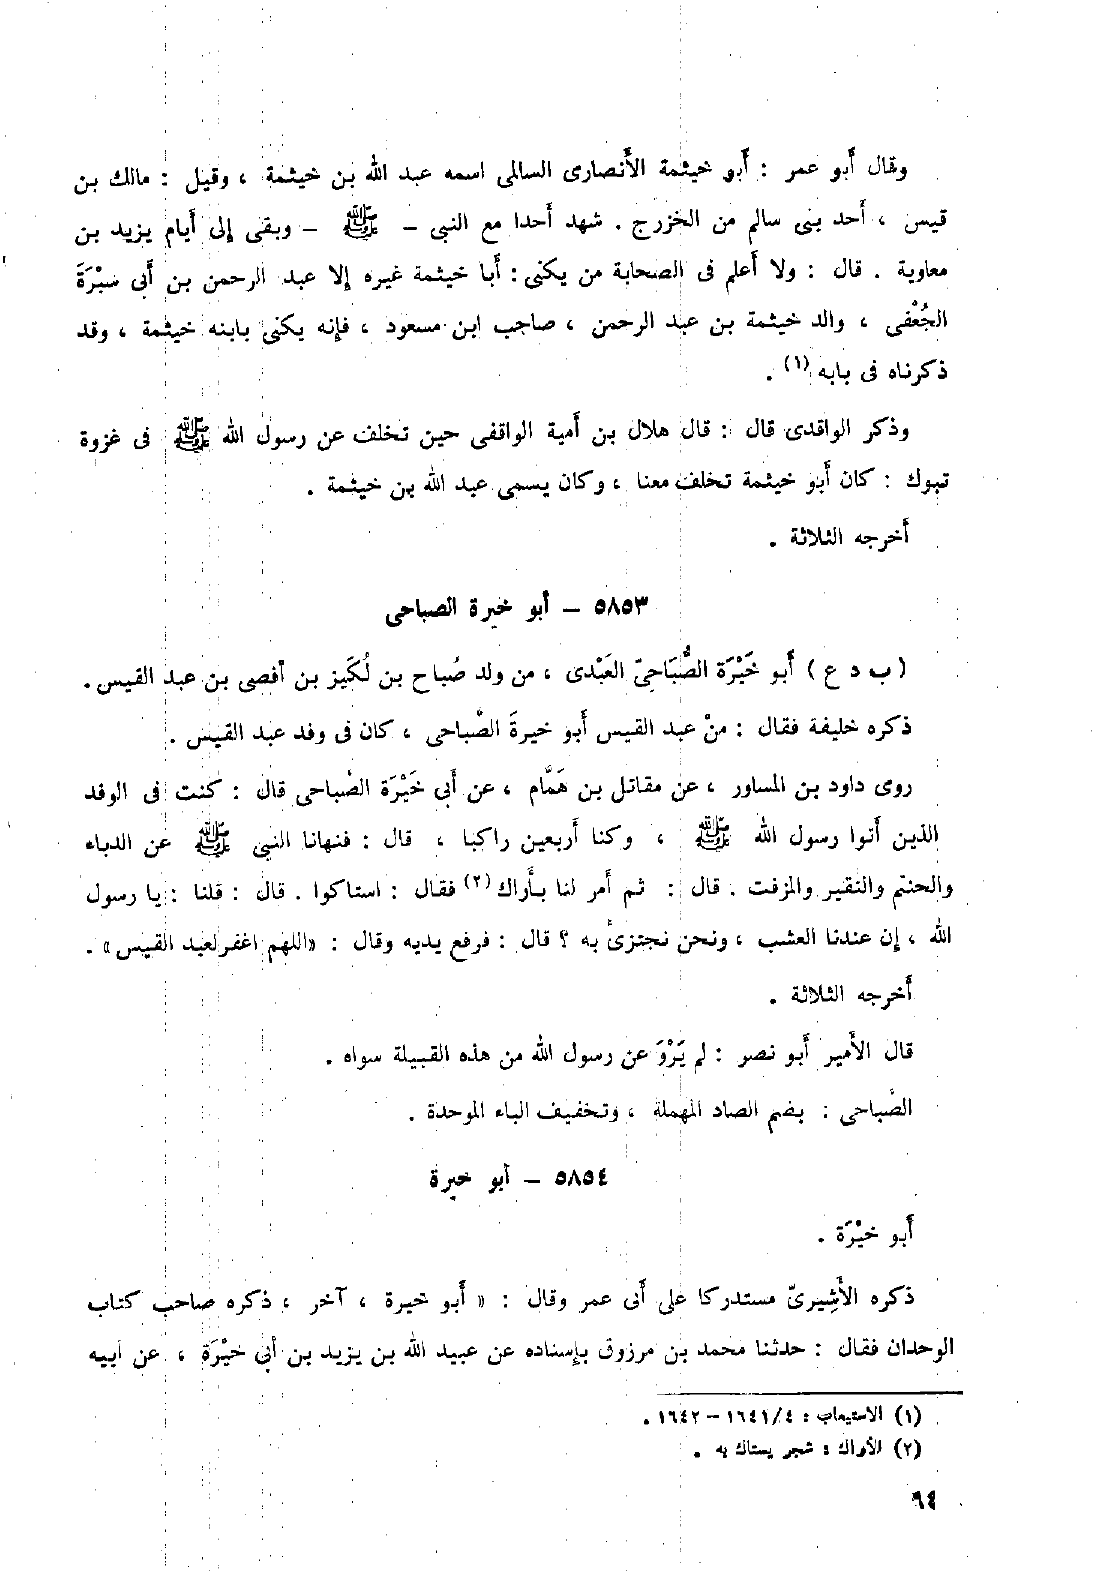 وقال أَبو عمر : أَبو خيثمة الأَنصارى السالمى اسمه عبد الله بن خيثمة ، وقيل : مالك بن
قيس ، أَحد بنى سالم من الخزرج . شهد أُحدا مع النبى – ﷺ – وبقى إلى أَيام يزيد بن
معاوية . قال : ولا أَعلم فى الصحابة من يكنى : أَبا خيثمة غيره إلا عبد الرحمن بن أَبى سَبْرَةَ
الجُعْفى ، والد خيثمة بن عبد الرحمن ، صاحب ابن مسعود ، فإنه يكنى بابنه خيثمة ، وقد
ذكرناه فى بابه (١) .
وذكر الواقدى قال : قال هلال بن أَمية الواقفى حين تخلف عن رسول الله ﷺ فى غزوة
تبوك : كان أَبو خيثمة تخلف معنا ، وكان يسمى عبد الله بن خيثمة .
أَخرجه الثلاثة .
٥٨٥٣ – أبو خيرة الصباحى
( ب د ع ) أَبو خَيْرَة الصُّبَاحِىّ العَبْدى ، من ولد صُباح بن لُكَيز بن أَفصى بن عبد القيس .
ذكره خليفة فقال : منْ عبد القيس أَبو خيرةَ الصُباحى ، كان فى وفد عبد القيس .
روى داود بن المساور ، عن مقاتل بن هَمَّام ، عن أَبى خَيْرَة الصُباحى قال : كنت فى الوفد
الذين أَتوا رسول الله ﷺ ، وكنا أَربعين راكبا ، قال : فنهانا النبى ﷺ عن الدباء
والحنتم والنقير والمزفت . قال : ثم أَمر لنا بأَراك (٢) فقال : استاكوا . قال : قلنا : يا رسول
الله ، إن عندنا العشب ، ونحن نجتزىُ به ؟ قال : فرفع يديه وقال : «اللهم اغفر لعبد القيس» .
أَخرجه الثلاثة .
قال الأَمير أَبو نصر : لم يَرْوَ عن رسول الله من هذه القبيلة سواه .
الصُباحى : بضم الصاد المهملة ، وتخفيف الباء الموحدة .
٥٨٥٤ – أبو خيرة
أَبو خيْرَة .
ذكره الأَشِيرىّ مستدركا على أَبى عمر وقال : « أَبو خيرة ، آخر ، ذكره صاحب كتاب
الوحدان فقال : حدثنا محمد بن مرزوق بإسناده عن عبيد الله بن يزيد بن أَبى خيْرَة ، عن أَبيه
(١) الاستيعاب : ١٦٤١/٤ – ١٦٤٢ .
(٢) الأراك : شجر يستاك به .
٦٤